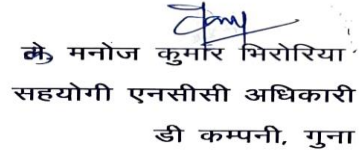 ले, मनोज कुमार भिरोरिया
सहयोगी एनसीसी अधिकारी
डी कम्पनी, गुना